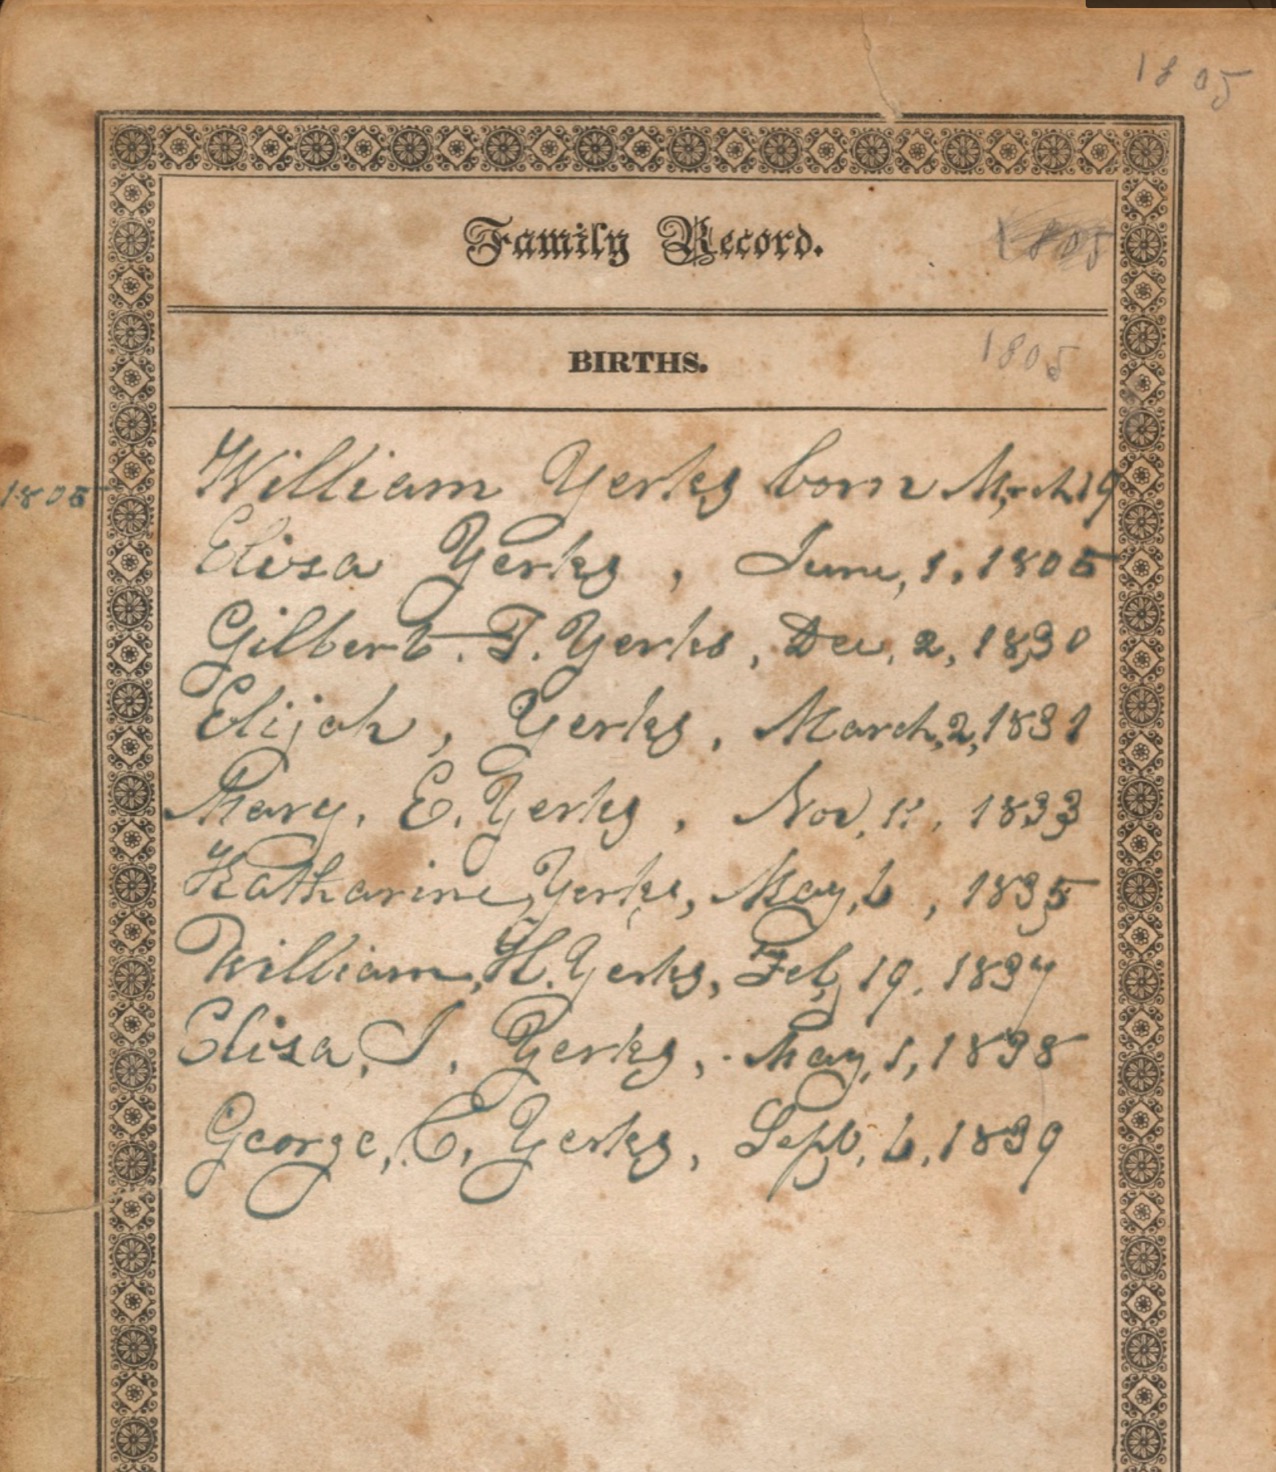 1805
Family Record.
1805
BIRTHS.
1805
William Yerks born March 19
1805
Elisa Yerks, June, 1, 1805
Gilbert. T. Yerks, Dec, 2, 1830
Elijah, Yerks, March, 2, 1831
Mary, E. Yerks, Nov, 11, 1833
Katharine, Yerks, May, 6, 1835
William, H. Yerks, Feb, 19, 1837
Elisa, J, Yerks, May, 1, 1838
George, C, Yerks, Sept, 6, 1839